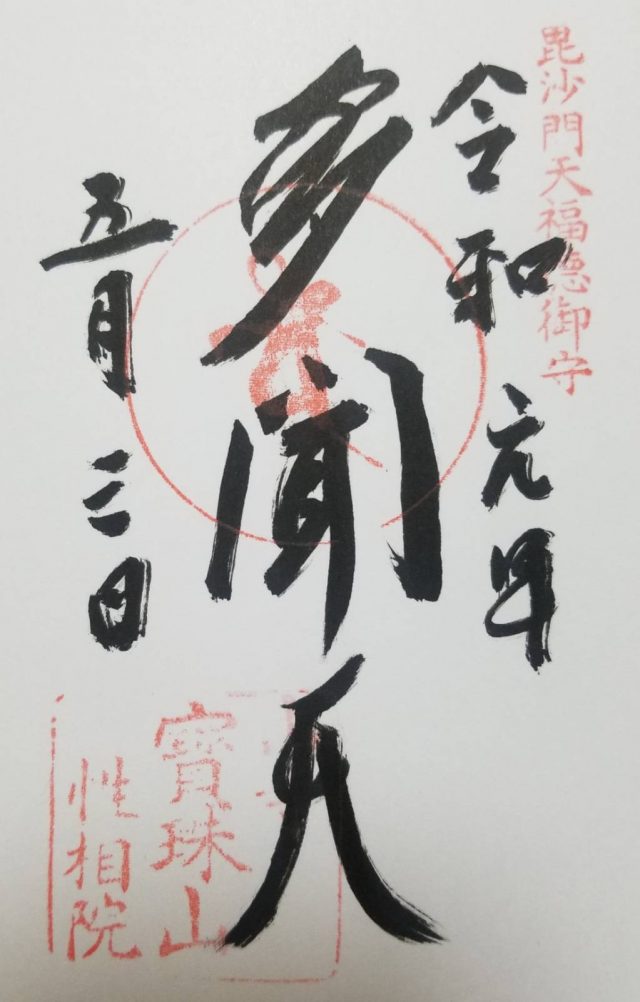 毘沙門天福徳御守
令和元年
多聞天
五月三日
寶珠山
性相院